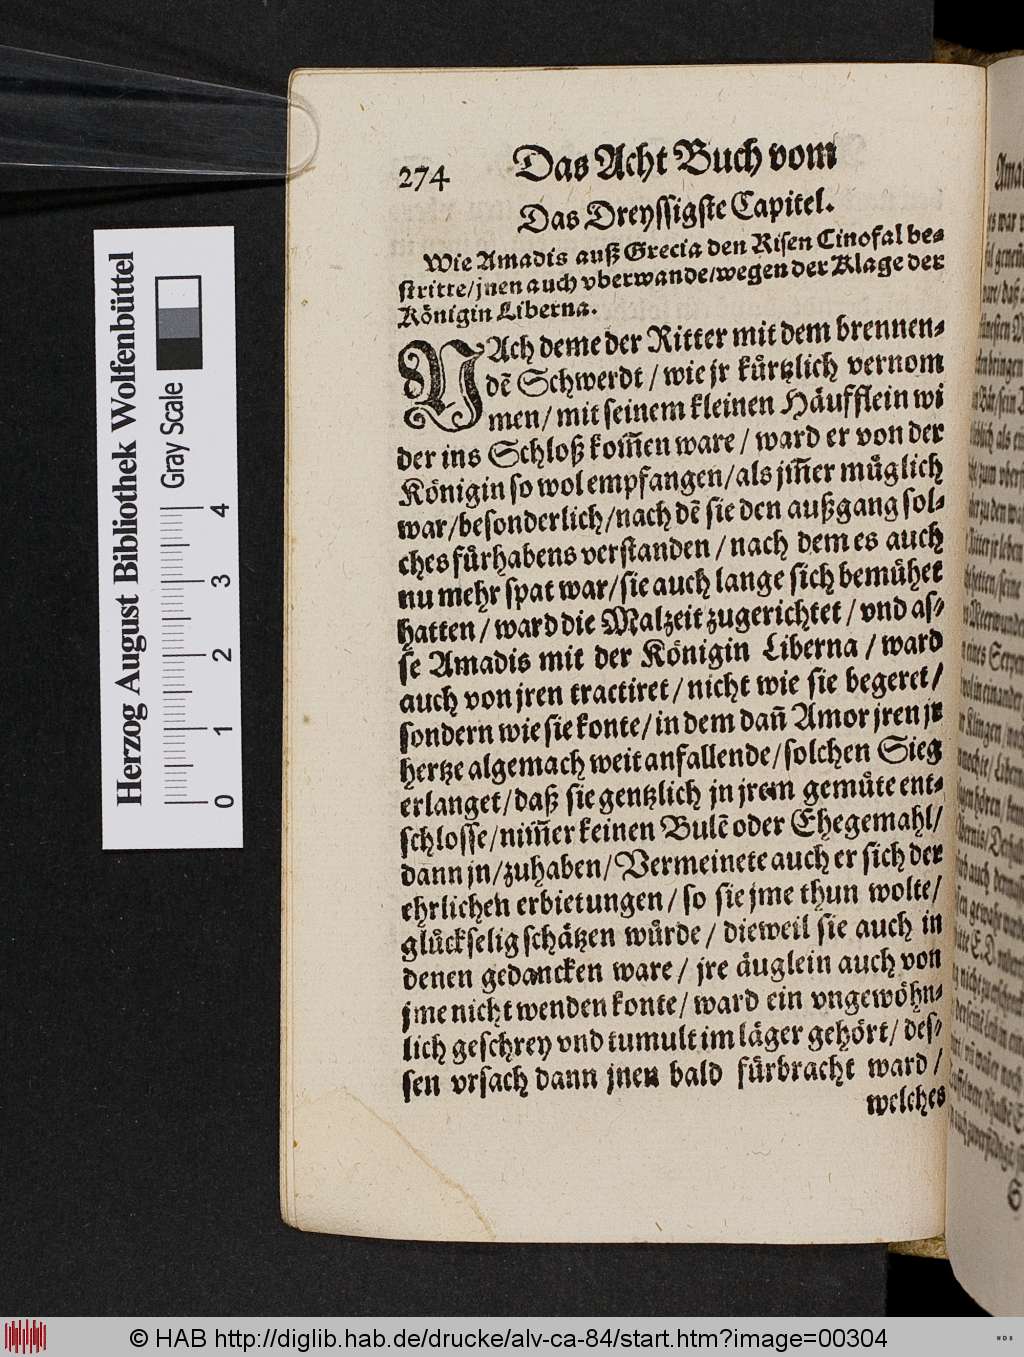 274 Das Acht Buch vom
Das Dreyssigste Capitel.
Wie Amadis auß Grecia den Risen Cinofal be⸗
stritte/jnen auch vberwande/wegen der Klage der
Königin Liberna.
NAch deme der Ritter mit dem brennen⸗
dẽ Schwerdt / wie jr kürtzlich vernom
men/ mit seinem kleinen Häufflein wi
der ins Schloß kom̃en ware / ward er von der
Königin so wol empfangen/als jm̃er müglich
war/besonderlich/nach dẽ sie den außgang sol⸗
ches fürhabens verstanden / nach dem es auch
nu mehr spat war/sie auch lange sich bemühet
hatten / ward die Malzeit zugerichtet / vnd as⸗
se Amadis mit der Königin Liberna / ward
auch von jren tractiret / nicht wie sie begeret /
sondern wie sie konte/ in dem dañ Amor jren jr
hertze algemach weit anfallende/solchen Sieg
erlanget/daß sie gentzlich jn jrem gemüte ent⸗
schlosse/nim̃er keinen Bulẽ oder Ehegemahl/
dann jn/zuhaben/Vermeinete auch er sich der
ehrlichen erbietungen/ so sie jme thun wolte/
glückselig schätzen würde / dieweil sie auch in
denen gedancken ware / jre äuglein auch von
jme nicht wenden konte/ ward ein vngewöhn⸗
lich geschrey vnd tumult im läger gehört/ des⸗
sen vrsach dann jnen bald fürbracht ward /
welches
Herzog August Bibliothek Wolfenbüttel
Gray Scale
0 1 2 3 4
© HAB http://diglib.hab.de/drucke/alv-ca-84/start.htm?image=00304